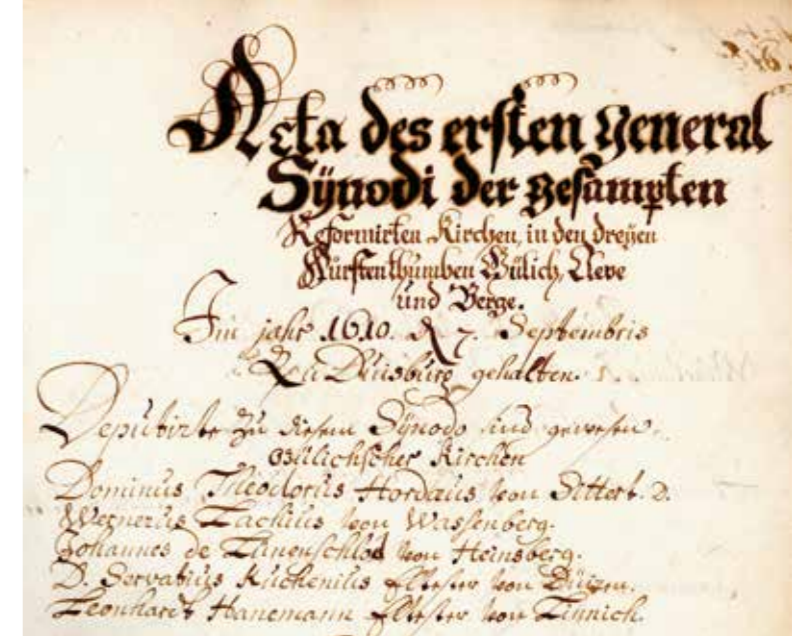 Acta des ersten General
Synodi der gesampten
Reformirten Kirchen, in den dreyen
Fürstenthumben Gülich, Cleve
und Berge.
Im jahr 1610. d. 7. Septembris
Zu Duisburg gehalten.
Deputirte zu diesem Synodo sind gewesen.
Gülichscher Kirchen
Dominus Theodorus Hordæus von Sittert. D.
Wernerus Lachius von Wassenberg.
Johannes de Lünenschlod von Heinsberg.
D. Servatius Kuchenius Eltester von Düren.
Leonhardt Hanemann Eltester von Linnich.